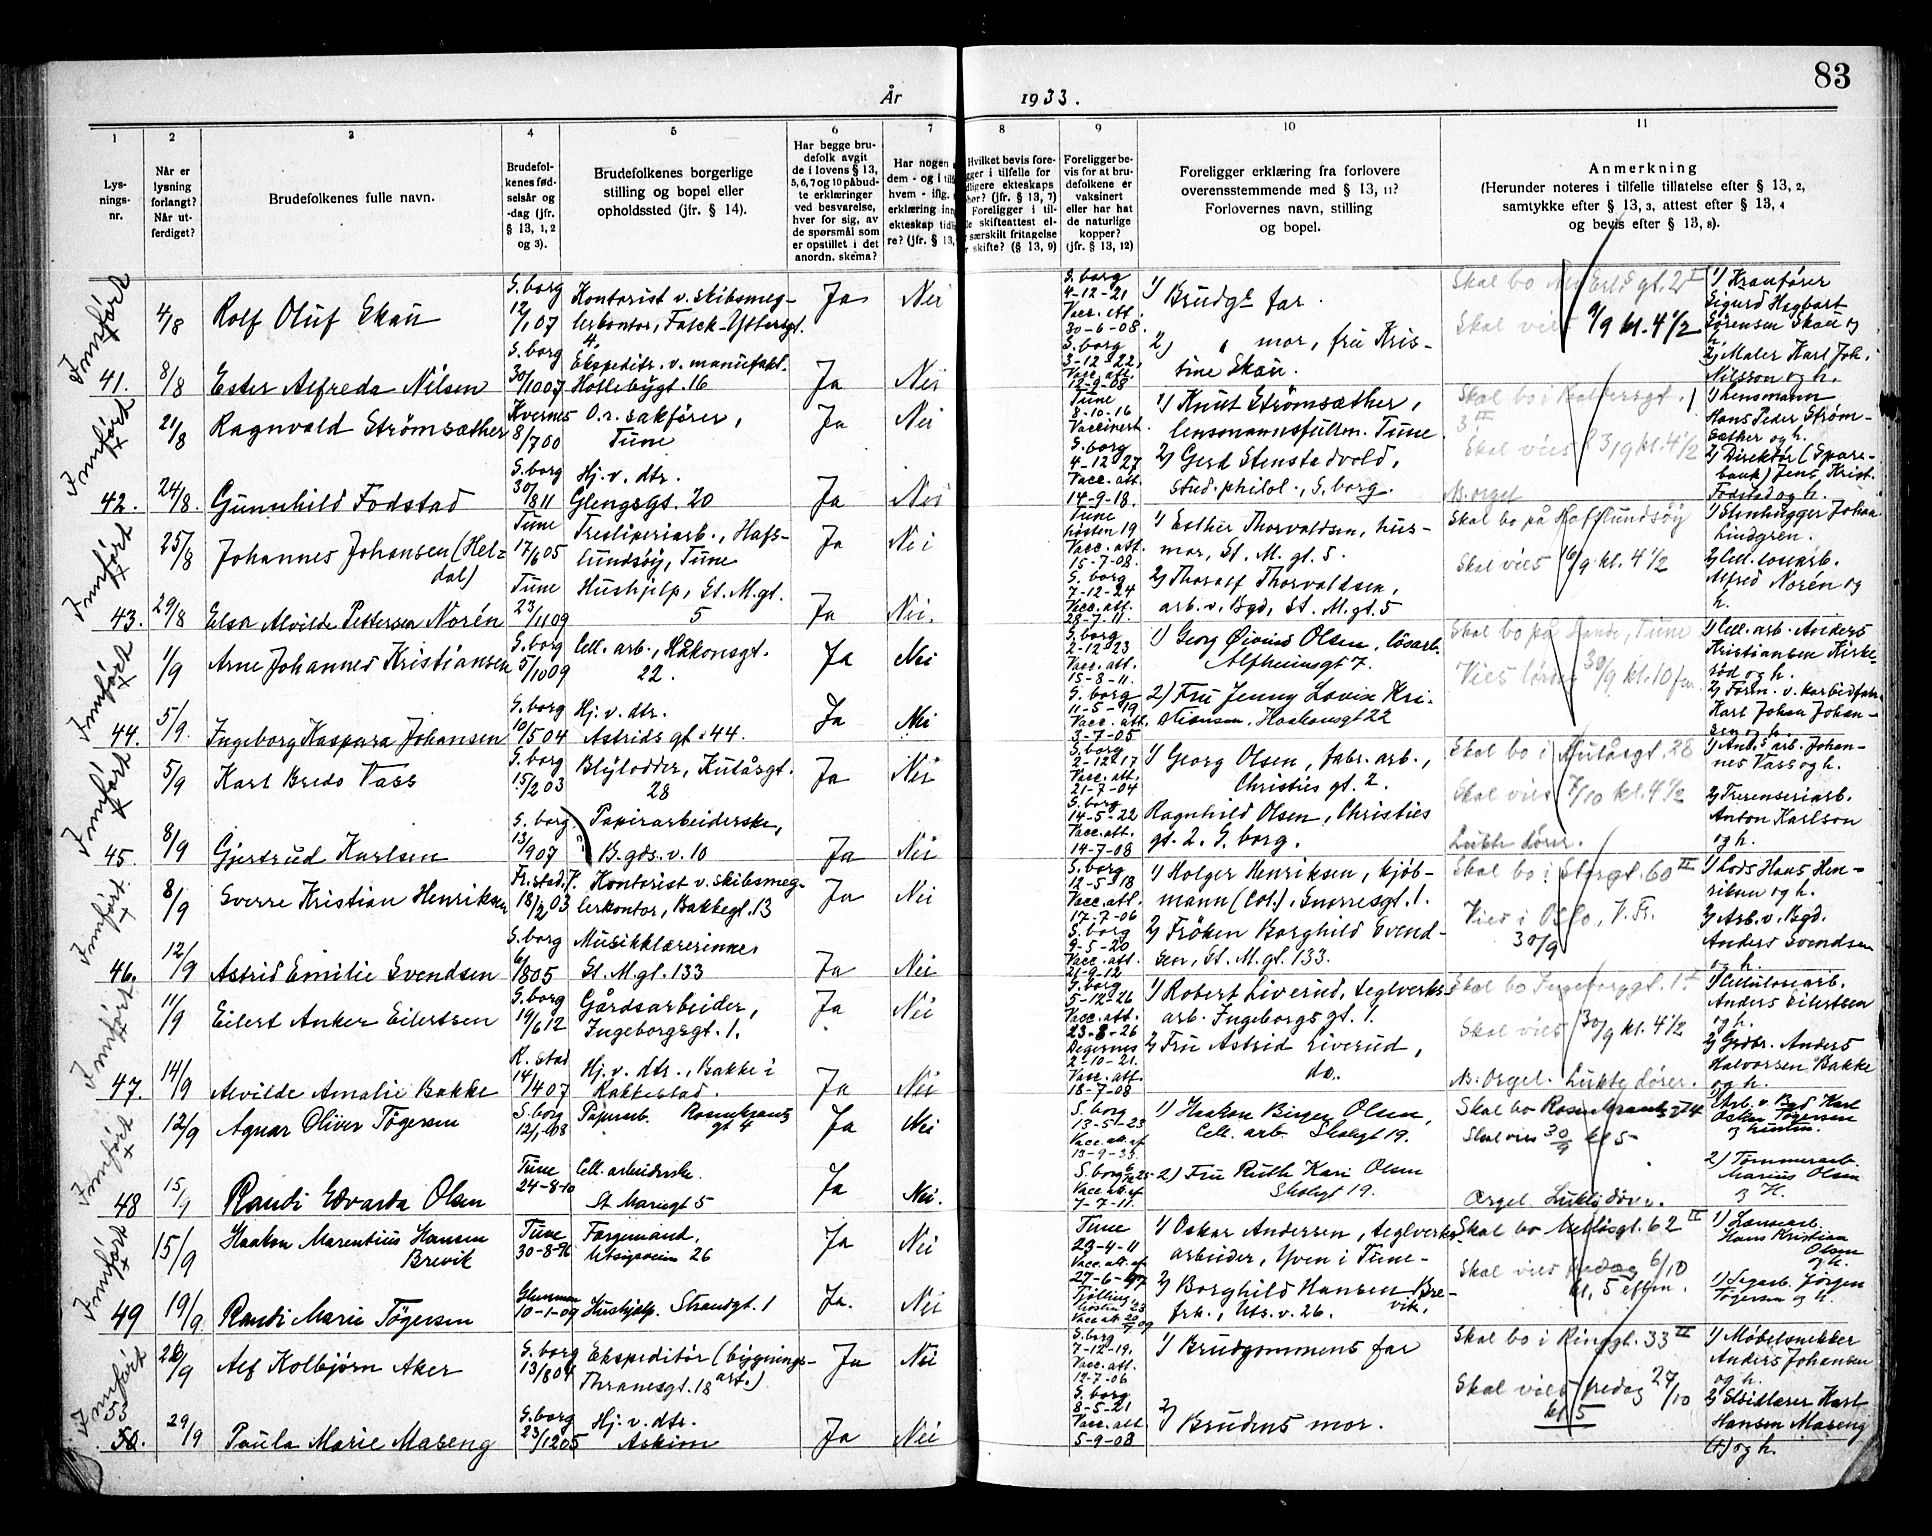 83
År 1933.
1 2 3 4 5 6 7 8 9 10 11
Lys-
nings-
nr.
Når er
lysning
forlangt?
Når ut-
ferdiget?
Brudefolkenes fulle navn.
Brudefol-
kenes fød-
selsår og
-dag (jfr.
§ 13, 1, 2
og 3).
Brudefolkenes borgerlige
stilling og bopel eller
opholdssted (jfr. § 14).
Har begge bru-
defolk avgit
de i lovens § 13,
5, 6, 7 og 10 påbud-
te erklæringer
ved besvarelse,
hver for sig, av
de spørsmål som
er opstillet i det
anordn. skema?
Har nogen
dem - og i tilf
hvem - iflg.
erklæring inn
ekteskap tidl
re? (jfr. § 13,
Hvilket bevis fore-
gger i tilfelle for
dligere ekteskaps
hør? (jfr. § 13, 7)
Foreligger i til-
le skifteattest el-
særskilt fritagelse
skifte? (§ 13, 9)
Foreligger be-
vis for at bru-
defolkene er
vaksinert
eller har hat
de naturlige
kopper?
(jfr. § 13, 12)
Foreligger erklæring fra forlovere
overensstemmende med § 13, 11?
Forlovernes navn, stilling
og bopel.
Anmerkning
(Herunder noteres i tilfelle tillatelse efter § 13, 2,
samtykke efter § 13, 3, attest efter § 13, 4
og bevis efter § 13, 8).
Innført
4/8 Rolf Oluf Skau
S.borg
12/1 07
Kontorist v. skibsmeg-
lerkontor, Falck-Yttersgt.
4.
Ja Nei
S.borg
4-12-21
Vacc. att.
30-6-08.
1) Brudg. far.
Skal bo
Skal vies 9/9 kl. 4 1/2
1) Kranfører
Sigurd Hagbart
Sørensen Skau og
h.
41. 8/8 Ester Alfreda Nilsen
S.borg
30/10 07
Ekspeditr. v. manufakt.
Hollebygt. 16
Ja Nei
S.borg
3-12-22
Vacc. att.
12-9-08
2) " mor, fru Kris-
tine Skau.
2) Maler Karl Joh.
Nilsson og h.
Innført
21/8 Ragnvald Strømsæther
Kvernes
8/7 00
O.r. sakfører,
Tune
Ja Nei
Tune
8-10-16
Vaccinert.
1) Knut Strømsæther,
lensmannsfullm. Tune.
Skal bo i
3 III
Skal vies 23/9 kl. 4 1/2
1) Lensmann
Hans Peder Strøm-
sæther og h.
42. 24/8. Gunnhild Fodstad
S.borg
30/1 11
Hj. v. dtr.
Glengsgt. 20
Ja Nei
S.borg
4-12-27
Vacc. att.
14-9-18.
2) Gerd Stenstadvold,
stud. philol., S.borg.
N. orgel
2) Direktør (Spare-
bank) Jens Krist.
Fodstad og h.
Innført
25/8 Johannes Johansen (Hel-
dal)
Tune
17/6 05
Tresliperiarb., Hafs-
lundsøy, Tune
Ja Nei
Tune
høsten 19
Vacc. att.
15-7-08.
1) Esther Thorvaldsen, hus-
mor, St. M. gt. 5.
Skal bo på Hafslundsøy
Skal vies 16/9 kl. 4 1/2
1) Stenhugger Johan
Lindgren.
43. 29/8 Elsa Alvilde Pettersen Norén
Tune
23/11 09
Hushjelp, St. M. gt.
5
Ja Nei.
S.borg
7-12-24
Vacc. att.
28-7-11.
2) Thoralf Thorvaldsen,
arb. v. Bgd, St. M. gt. 5
2) Cell. losearb.
Alfred Norén og
h.
Innført
1/9 Arne Johannes Kristiansen
S.borg
5/10 09
Cell. arb., Håkonsgt.
22.
Ja Nei
S.borg
2-12-23
Vacc. att.
15-8-11.
1) Georg Øivind Olsen, løsarb.
Alfheimsgt 7.
Skal bo på Sande, Tune
Vies lørdag 30/9 kl. 10 fm.
1) Cell. arb. Anders
Kristiansen Kirke-
rød og h.
44. 5/9. Ingeborg Kaspara Johansen
S.borg
10/5 04
Hj. v. dtr.
Astrids gt. 44.
Ja Nei
S.borg
11-5-19
Vacc. att.
3-7-05
2) Fru Jenny Lovise Kri-
stiansen, Haakonsgt 22
2) Form. v. karbidfabr.
Karl Johan Johan-
sen og h.
Innført
5/9 Karl Bredo Vass
S.borg
15/2 03
Blylodder, Kulåsgt.
28
Ja Nei
S.borg
2-12-17
Vacc. att.
21-7-04
1) Georg Olsen, fabr. arb.,
Christies gt. 2.
Skal bo i Kulåsgt. 28
Skal vies 7/10 kl. 4 1/2
1) Anl.s arb. Johan-
nes Vass og h.
45. 8/9 Gjertrud Karlsen
S.borg.
13/9 07
Papirarbeiderske,
B. gds. v. 10
Ja Nei
S.borg
14-5-22
Vacc. att.
14-7-08
Ragnhild Olsen, Christies
gt. 2. S.borg.
Lukte dører.
2) Treinseriarb.
Anton Karlson
og h.
Innført
8/9 Sverre Kristian Henriksen
Fr.stad.
18/2 03
Kontorist v. skibsmeg-
lerkontor, Bakkegt. 13
Ja Nei
S.borg
12-5-18
Vacc. att.
17-7-06
1) Holger Henriksen, kjøb-
mann (Col.), Snorresgt. 1.
Skal bo i Storgt. 60 II
Vies i Oslo, V. Fr.
30/9
1) Lods Hans Hen-
riksen og h.
46. 12/9 Astrid Emilie Svendsen
S.borg
6/8 05
Musikklærerinne
St. M. gt. 133
Ja Nei
S.borg
9-5-20
Vacc. att.
21-9-12
2) Frøken Borghild Svend-
sen, St. M. gt. 133.
2) Arb. v. Bgd.
Anders Svendsen
og h.
Innført
11/9 Eilert Anker Eilertsen
S.borg
19/6 12
Gårdsarbeider,
Ingeborgsgt. 1.
Ja Nei
S.borg
5-12-26
Vacc. att.
23-8-26
1) Robert Liverud, teglverks-
arb. Ingeborgs gt. 1.
Skal bo Ingeborggt. 1. I
Skal vies 30/9 kl. 4 1/2
1) Cellulosearb.
Anders Eilertsen
og h.
47. 14/9 Alvilde Amalie Bakke
R.stad
14/4 07
Hj. v. dtr., Bakke i
Rakkestad.
Ja Nei
Degernes
2-10-21.
Vacc. att.
18-7-08
2) Fru Astrid Liverud,
do.
N. Orgel. Lukte dører.
2) Grdbr. Anders
Halvorsen Bakke
og h.
Innført
12/9 Agnar Oliver Tøgersen
S.borg
12/1-08
Papirarb. Rosenkrantz
gt 4
Ja Nei
S.borg
13-5-23
Vacc. att. af
13-9-35.
1) Haakon Birger Olsen,
Cell. arb. Skolegt 19.
Skal bo Rosenkrantz gt 4
Skal vies 30/9 kl 5-
1) Arb. v. Bgd Karl
Oskar Tøgersen
og hustru.
48 15/9 Randi Edvarda Olsen
Tune
24-8-10
Cell. arbeiderske
St. Mariegt 5
Ja Nei.
S.borg 6/25
Vacc att. af
7-7-11.
2) Fru Ruth Kari Olsen
Skolegt 19.
Orgel. Lukte dører.
2) Tømmerarb.
Marius Olsen
og H.
Innført
15/9 Haakon Marentius Hansen
Brevik
Tune
30-8-96
Færgemand,
Utsigtveien 26
Ja Nei
Tune
23-4-11
Vacc. att. af
27-6-97
1) Oskar Andersen, teglverks-
arbeider, Yven i Tune-
Skal bo gt. 62 II
Skal vies fredag 6/10
kl. 5 eftm.
1) Løsarb.
Hans Kristian
Olsen
og h.
49 19/9. Randi Marie Tøgersen
10-1-09
Hushjelp. Strandgt. 1
Ja. Nei
Tjølling
høsten 23
2) Borghild Hansen Bre-
vik,
frk., Uts. v. 26.
1) Sagarb. Jørgen
Tøgersen og h.
Innført
26/9 Alf Kolbjørn Aker
S.borg
13/8 04
Ekspeditør (bygnings-
art.)
Thranesgt. 18
Ja Nei
S.borg
7-12-19.
Vacc. att.
12-7-06
1) Brudgommens far
Skal bo i Ringgt. 33 II
Skal vies fredag 27/10
kl 5
1) Møbelsnekker
Anders Johansen
og h.
53
50. 29/9 Paula Marie Maseng
S.borg
23/12 05
Hj. v. dtr.
Askim
Ja Nei
S.borg
8-5-21
Vacc. att
5-9-08
2) Brudens mor.
2) Skredder Karl
Hansen Maseng
(†) og h.